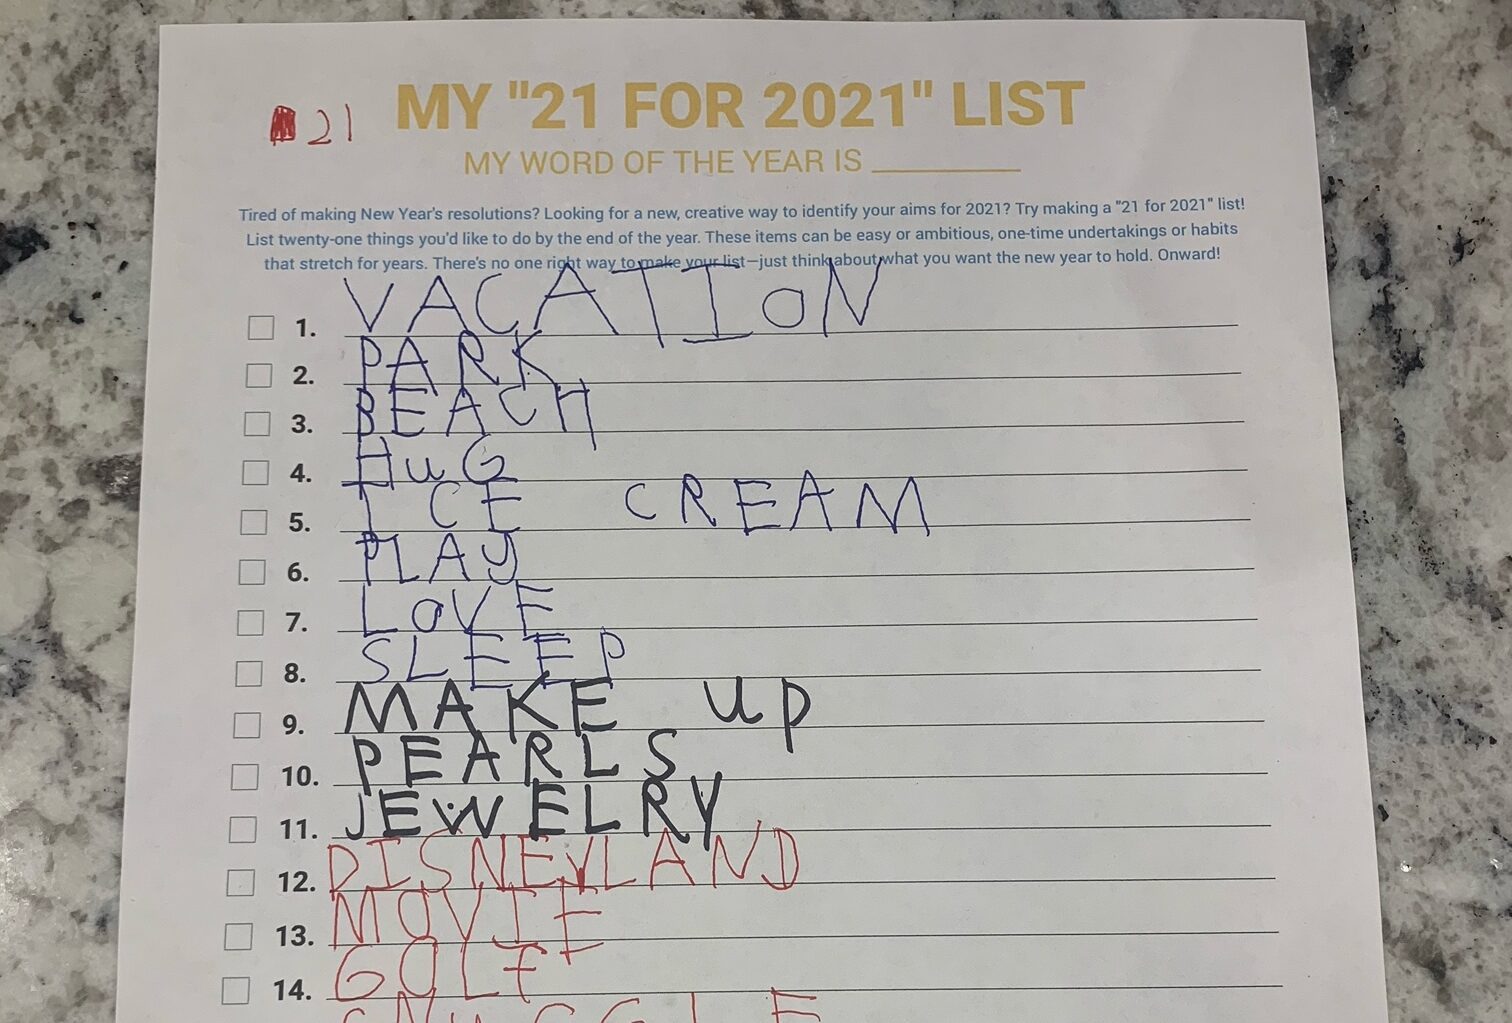 21 MY "21 FOR 2021" LIST
MY WORD OF THE YEAR IS
Tired of making New Year's resolutions? Looking for a new, creative way to identify your aims for 2021? Try making a "21 for 2021" list!
List twenty-one things you'd like to do by the end of the year. These items can be easy or ambitious, one-time undertakings or habits
that stretch for years. There's no one right way to make your list—just think about what you want the new year to hold. Onward!
1. VACATION
2. PARK
3. BEACH
4. HuG
5. ICE CREAM
6. PLAY
7. LOVE
8. SLEEP
9. MAKE up
10. PEARLS
11. JEWELRY
12. DISNEYLAND
13. MOVIE
14. GOLf
SNuGGLE